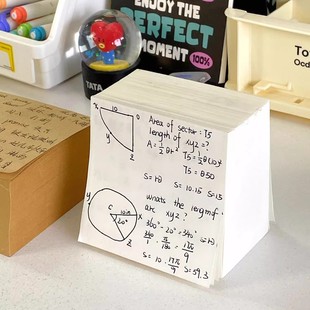 ENJOY THE
PERFECT
MOMENT
100%
TATA
To
Ocd
x 10 0
y
z
Area of sector : 75
length of xyz = ?
A = 1/2 θr²
75 = 1/2 θ(10)²
75 = θ50
S = rθ
S = 10·1.5 S = 15
whats the length of
arc xyz?
y
C
10.15
20°
x
z
360° - 20° = 340°
340/1 · π/180 = 17π/9
S = 10 · 17π/9 S = 59.3